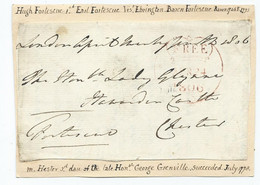 Hugh Fortescue 1st Earl Fortescue Visct Ebrington Baron Fortescue
London April twenty 1806
FREE
1806
The Honble Lady Glynne
Hawarden Castle
Chester
Fortescue
m. Hester 2d dau of the late Honble George Grenville, succeeded July 1785